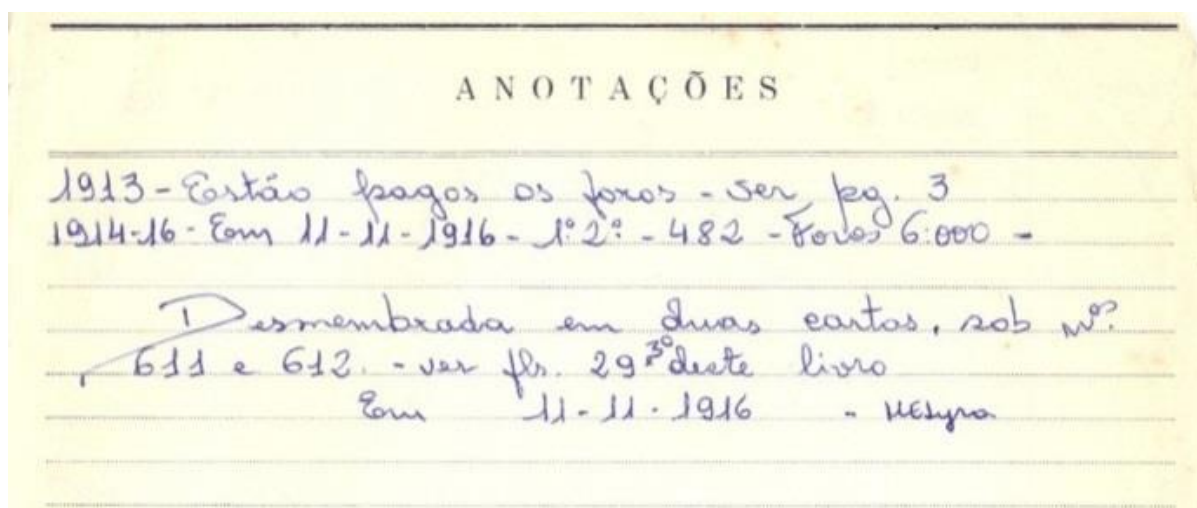 ANOTAÇÕES
1913 - Estão pagos os foros - ver pg. 3
1914-16 - Em 11-11-1916 - 1º 2º - 482 - Foros 6:000 -
Desmembrada em duas cartas, sob nºs
611 e 612. - ver fls. 29 3º deste livro
Em 11-11-1916 -